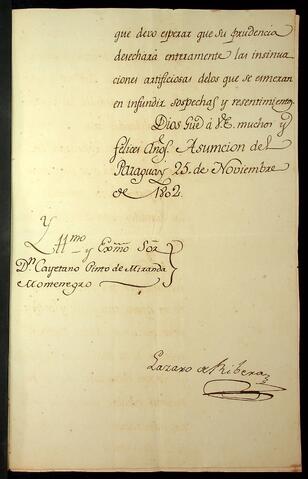 que devo esperar que su prudencia
desechará enteramente las insinua
ciones artificiosas delos que se esmeran
en infundir sospechas y resentimientos.
Dios Gue á V.E. muchos y
felices años. Asumcion del
Paraguay 25. de Noviembre
de 1802.
Yllmo y Exmo Sor
Dn Cayetano Pinto de Miranda
Momenegro
Lazaro de Ribera